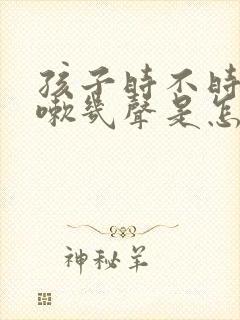 孩子時不時
嗽幾聲是怎
神秘羊